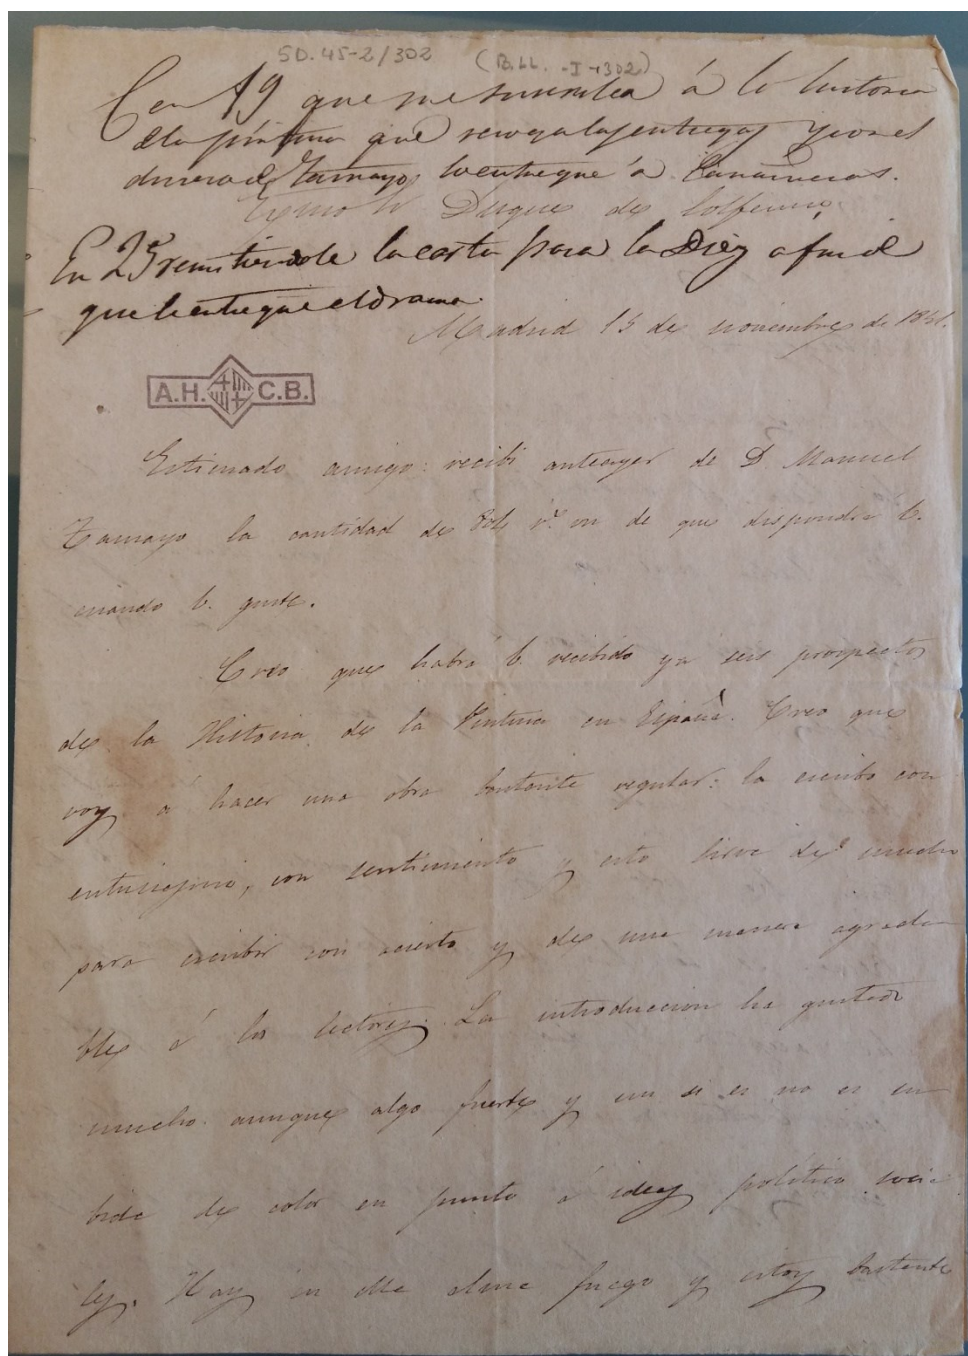 5D.45-2/302 (B.LL. -I-1302)
En 19 que me suscriba á la historia
de la pintura que recoga las entregas y con el
dinero de Tamayo, lo entregue á Cañameras.
Exmo Sr Duque de Solferino,
En 25 remitiendole la carta para la Diez a fin de
que le entregue el drama.
Madrid 15 de noviembre de
A.H. C.B.
Estimado amigo: recibi anteayer de D. Manuel
Tamayo la cantidad de rs. vn de que dispondrá V.
cuando V. guste.
Creo que habrá V. recibido ya seis prospectos
de la Historia de la Pintura en España. Creo que
voy á hacer una obra bastante regular: la escribo con
entusiasmo, con sentimiento y esto sirve de mucho
para escribir con acierto y de una manera agrada
ble á los lectores. La introduccion ha gustado
mucho aunque algo fuerte y un si es no es su
bida de color en punto á ideas político socia
les. Hay en ella alma fuego y estoy bastante